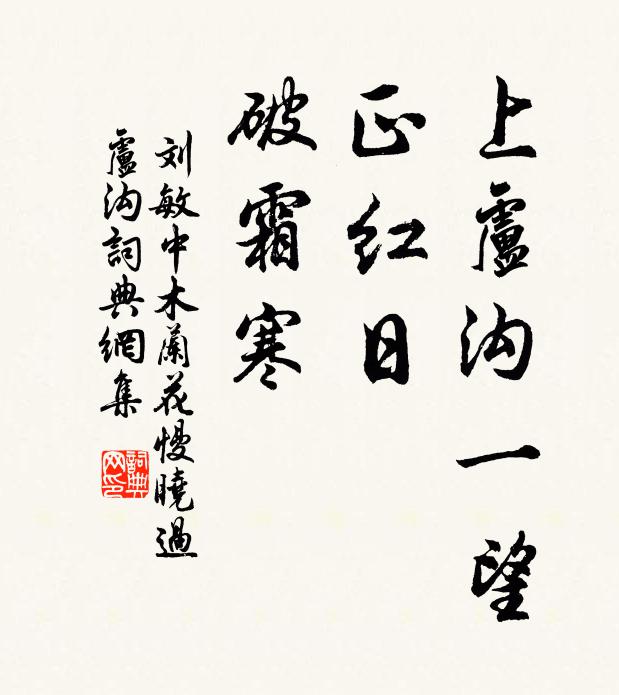 上盧沟一望
正红日
破霜寒
刘敏中木蘭花慢曉過
盧沟詞典網集
詞典网印